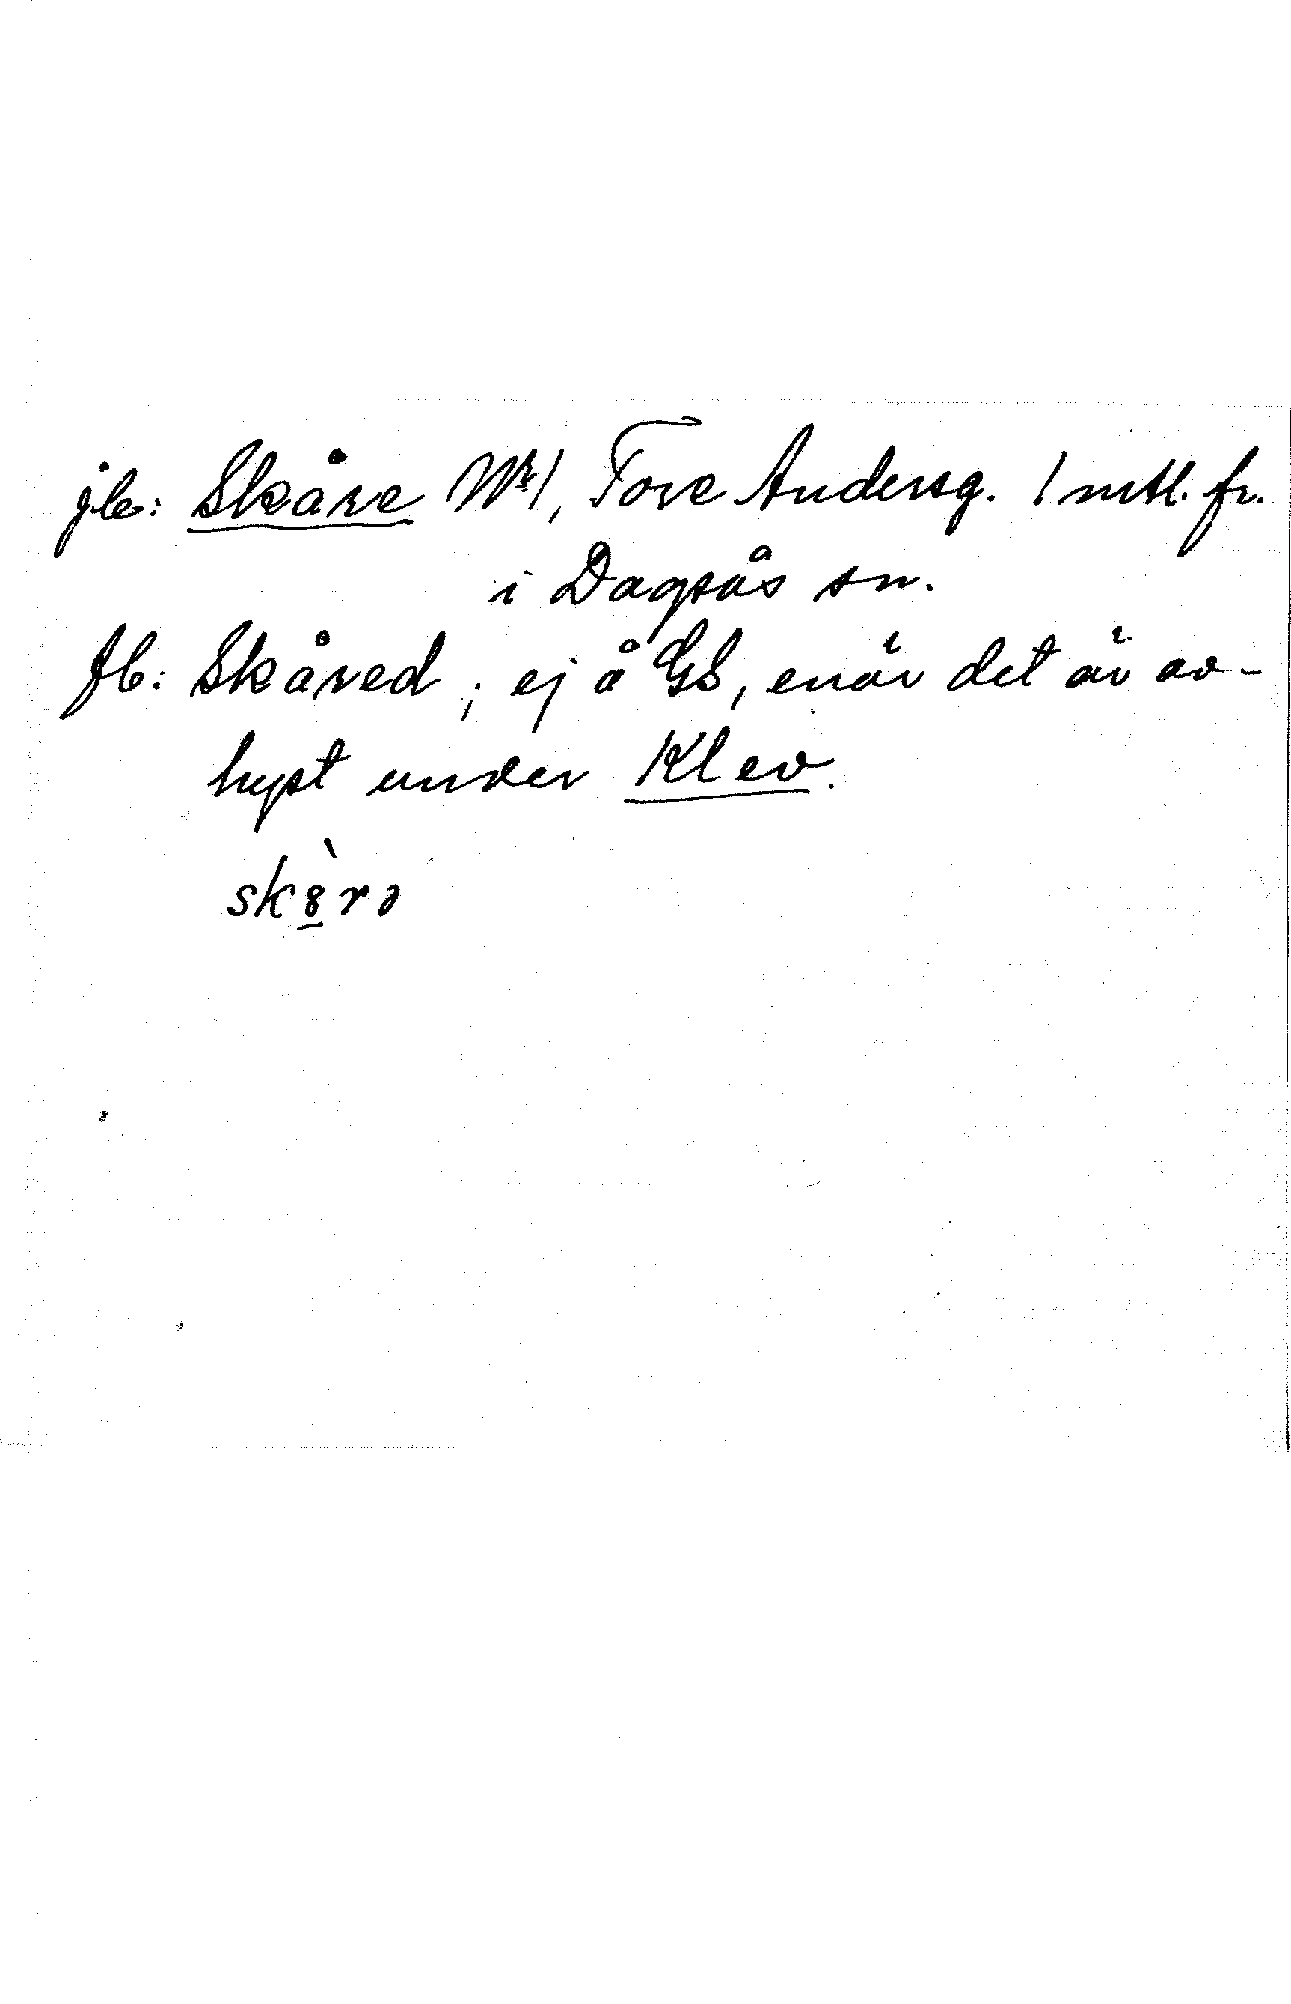 jb: Skåre Nr 1, Tore Andersg. 1 mtl. fr.
i Dagsås sn.
fb: Skåred; ej å GS, enär det är av-
hyst under Klev.
sk8̲̀rə